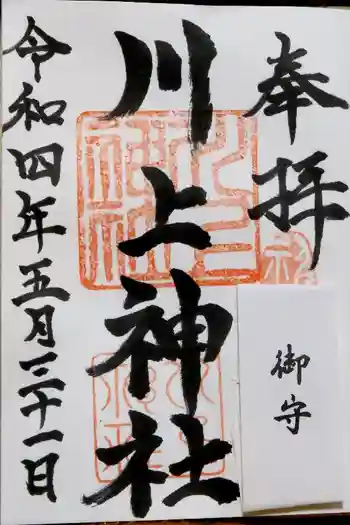 奉拝
川上神社
令和四年五月三十一日
御守